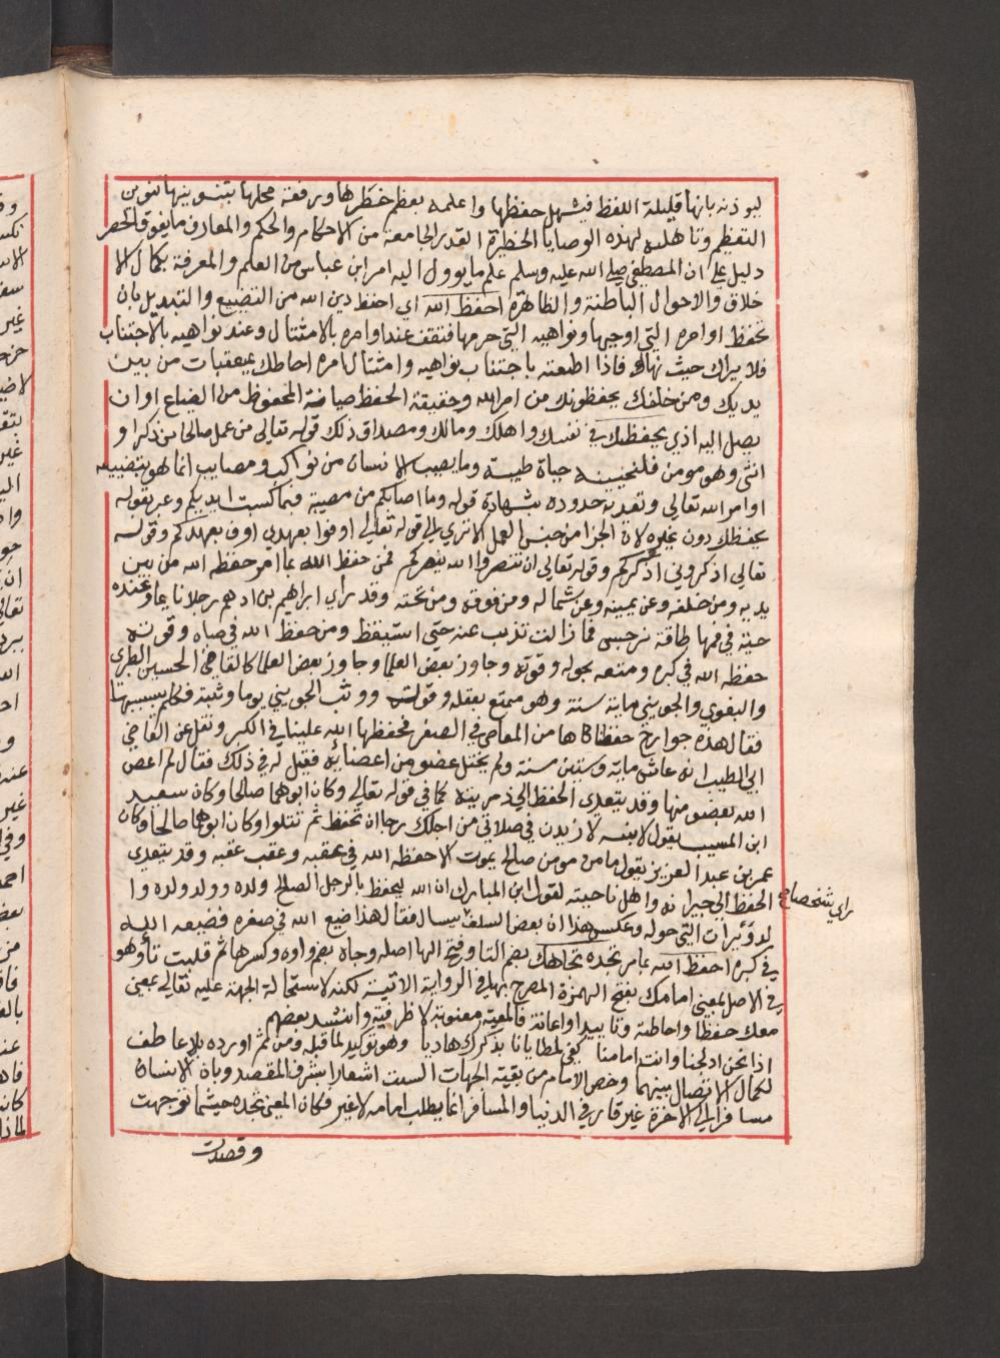 ليوذنه بانها قليلة اللفظ فيسهل حفظها واعلمه بعظم خطرها ورفعة محلها بتنوينها تنوين
التعظيم وتاهله لهذه الوصايا الخطيرة القدر الجامعة من الاحكام والحكم والمعارف ما يفوق الحصر
دليل علي ان المصطفي صلي الله عليه وسلم علم ما يوول اليه امر ابن عباس من العلم والمعرفة بكمال الا
خلاق والاحوال الباطنة والظاهرة احفظ الله اي احفظ دين الله من التضييع والتبديل بان
تحفظ اوامره التي اوجبها ونواهيه التي حرمها فتقف عند اوامره بالامتثال وعند نواهيه بالاجتناب
فلا يراك حيث نهاك فاذا اطعته باجتناب نواهيه وامتثال امره احاطك بمعقبات من بين
يديك ومن خلفك يحفظونك من امر الله وحقيقة الحفظ صيانة المحفوظ من الضياع او ان
يصل اليه اذي يحفظك في نفسك واهلك ومالك ومصداق ذلك قوله تعالي من عمل صالحا من ذكر او
انثي وهو مومن فلنحيينه حياة طيبة وما يصيب الانسان من نوايب ومصايب انما هو بتضييعه
اوامر الله تعالي وتعديه حدوده بشهادة قوله وما اصابكم من مصيبة فبما كسبت ايديكم وعبر بقوله
يحفظك دون غيره لان الجزا من جنس العمل الا تري الي قوله تعالي اوفوا بعهدي اوف بعهدكم وقوله
تعالي اذكروني اذكركم وقوله تعالي ان تنصروا الله ينصركم فمن حفظ الله بما امر حفظه الله من بين
يديه ومن خلفه وعن يمينه وعن شماله ومن فوقه ومن تحته وقد راي ابراهيم بن ادهم رجلا نايما وعنده
حية في فمها طاقة نرجس فما زالت تذب عنه حتي استيقظ ومن حفظ الله في صباه وقوته
حفظه الله في كبره ومتعه بحوله وقوته وجاوز بعض العلما وجاوز بعض العلما كالقاضي الحسين الطبري
والبغوي والجويني ماية سنة وهو ممتع بعقله وقوته ووثب الجويني يوما وثبة فكلم بسببها
فقال هذه جوارح حفظناها من المعاصي في الصغر فحفظها الله علينا في الكبر ونقل عن القاضي
ابي الطيب انه عاش ماية وستين سنة ولم يختل عضو من اعضائه فقيل له في ذلك فقال لم اعص
الله بعضو منها وقد يتعدي الحفظ الي ذريته كما في قوله تعالي وكان ابوهما صالحا وكان سعيد
ابن المسيب يقول لابنه لازيدن في صلاتي من اجلك رجا ان تحفظ ثم تتلوا وكان ابوهما صالحا وكان
عمر بن عبد العزيز يقول ما من مومن صالح يموت الا حفظه الله في عقبه وعقب عقبه وقد يتعدي
الحفظ الي جيرانه واهل ناحيته لقول ابن المبارك ان الله ليحفظ بالرجل الصالح ولده وولد ولده وا
لدويرات التي حوله وعكس هذا ان بعض السلف يسال فقال هذا ضيع الله في صغره فضيعه الله
راي شخصا
في كبره احفظ الله بما مر تجده تجاهك بضم التا وفتح الها اصله وجاه بضم واوه وكسرها ثم قلبت تا وهو
في الاصل بمعني امامك بفتح الهمزة المصرح بها في الرواية الاتية لكنه لاستحالة الجهة عليه تعالي بمعني
معك حفظا واحاطة وتاييدا واعانة فالمعية معنوية لا ظرفية وانشد بعضهم
اذا نحن ادلجنا وانت امامنا كفي لمطايانا بذكراك هاديا وهو توكيد لما قبله ومن ثم اورده بلا عاطف
لكمال الاتصال بينهما وخص الامام من بقية الجهات الست اشعارا بشرف المقصد وبان الانسان
مسافر الي الاخرة غير قار في الدنيا والمسافر انما يطلب امامه لا غير فكان المعني تجده حيثما توجهت
وقصدت